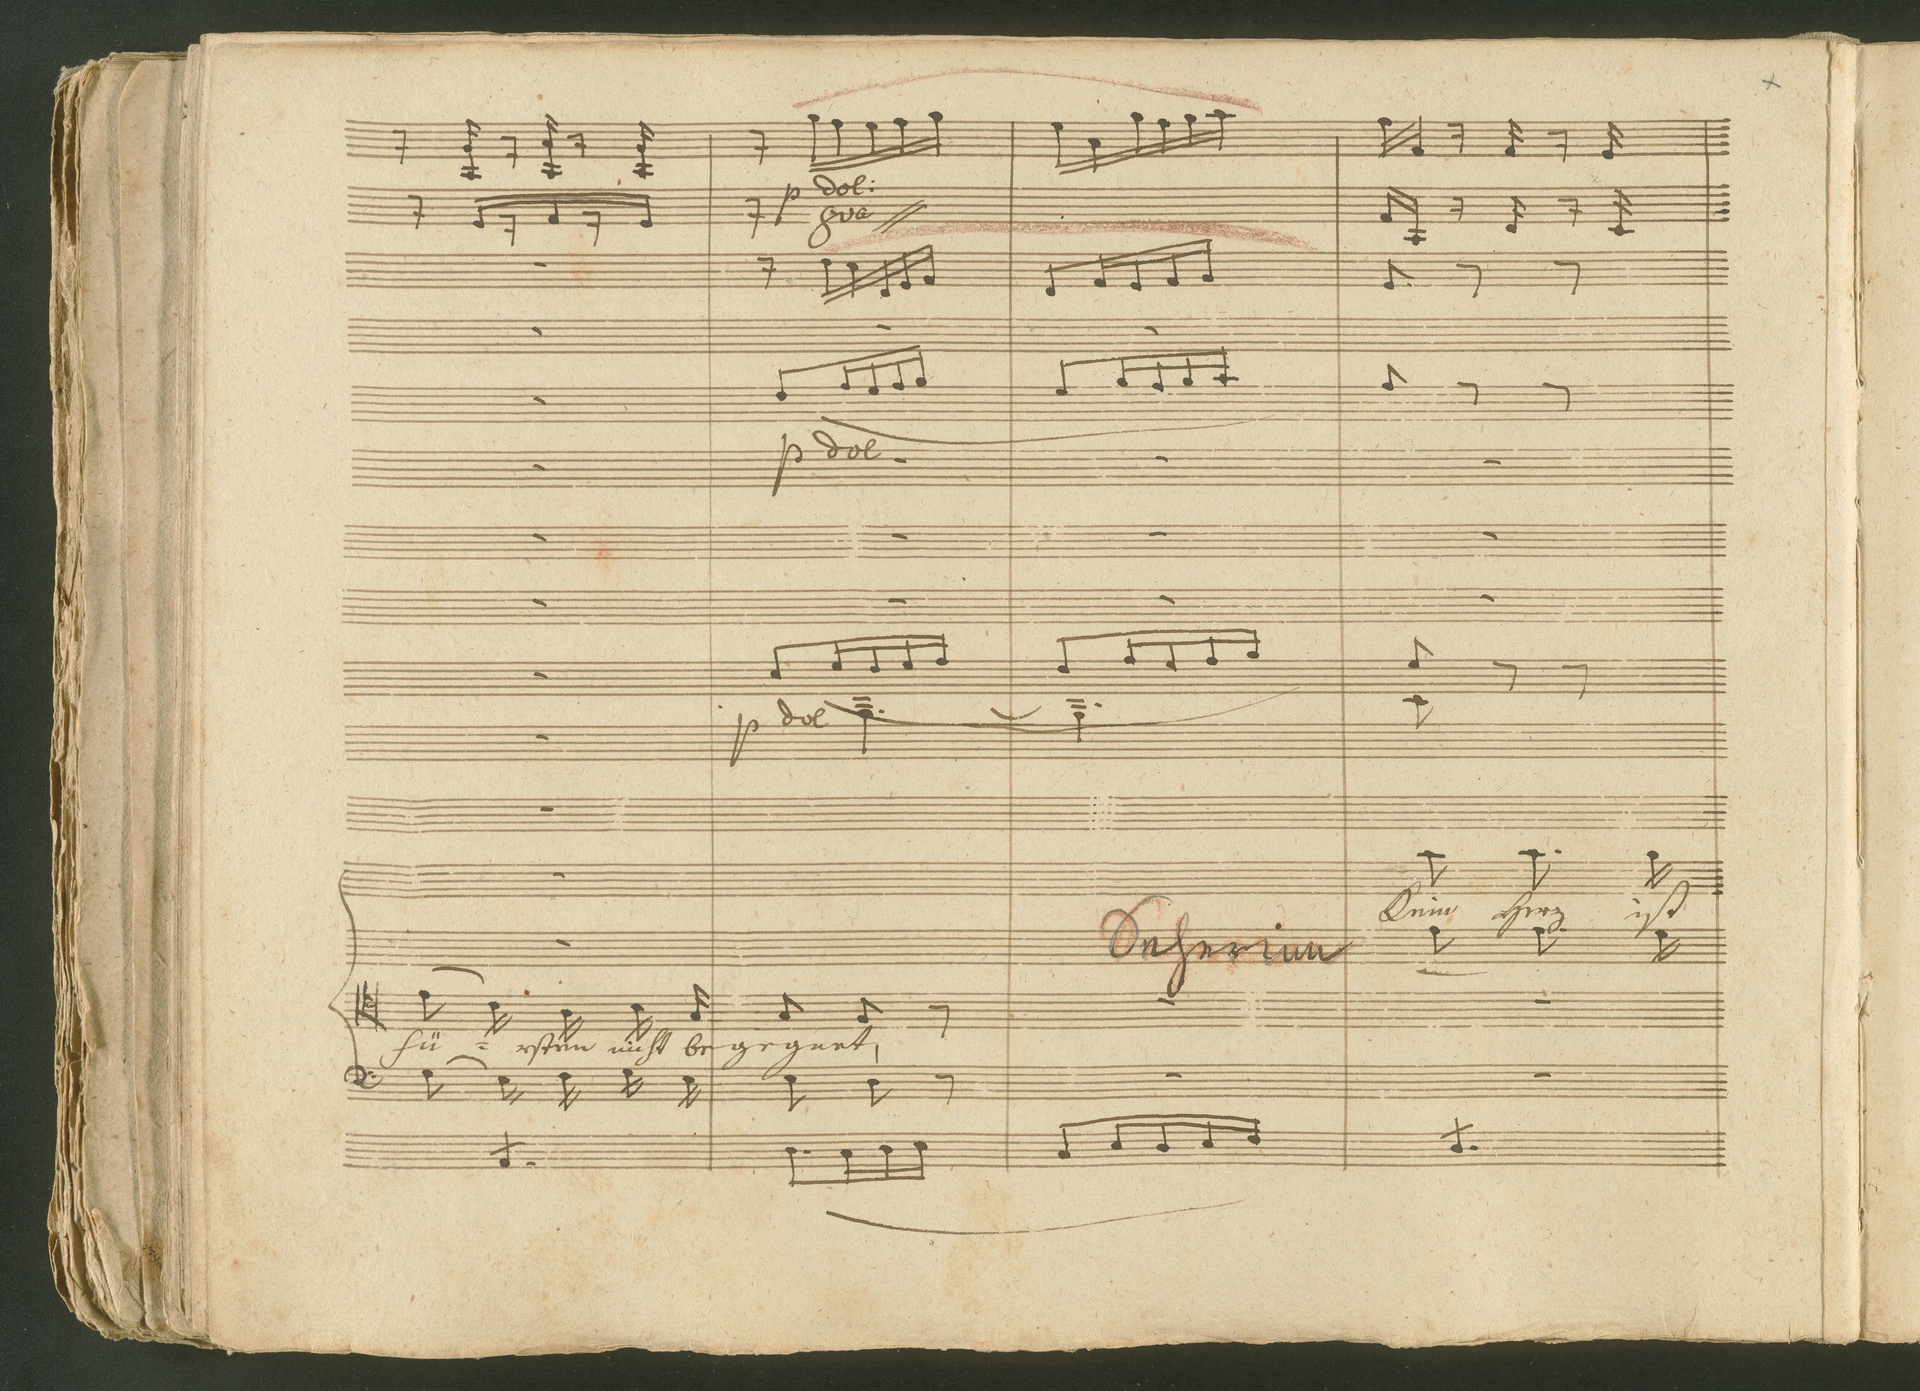 p dol:
8va
p dol
p dol
Seherinn
Kein Herz ist
Fü = rsten nicht begegnet,